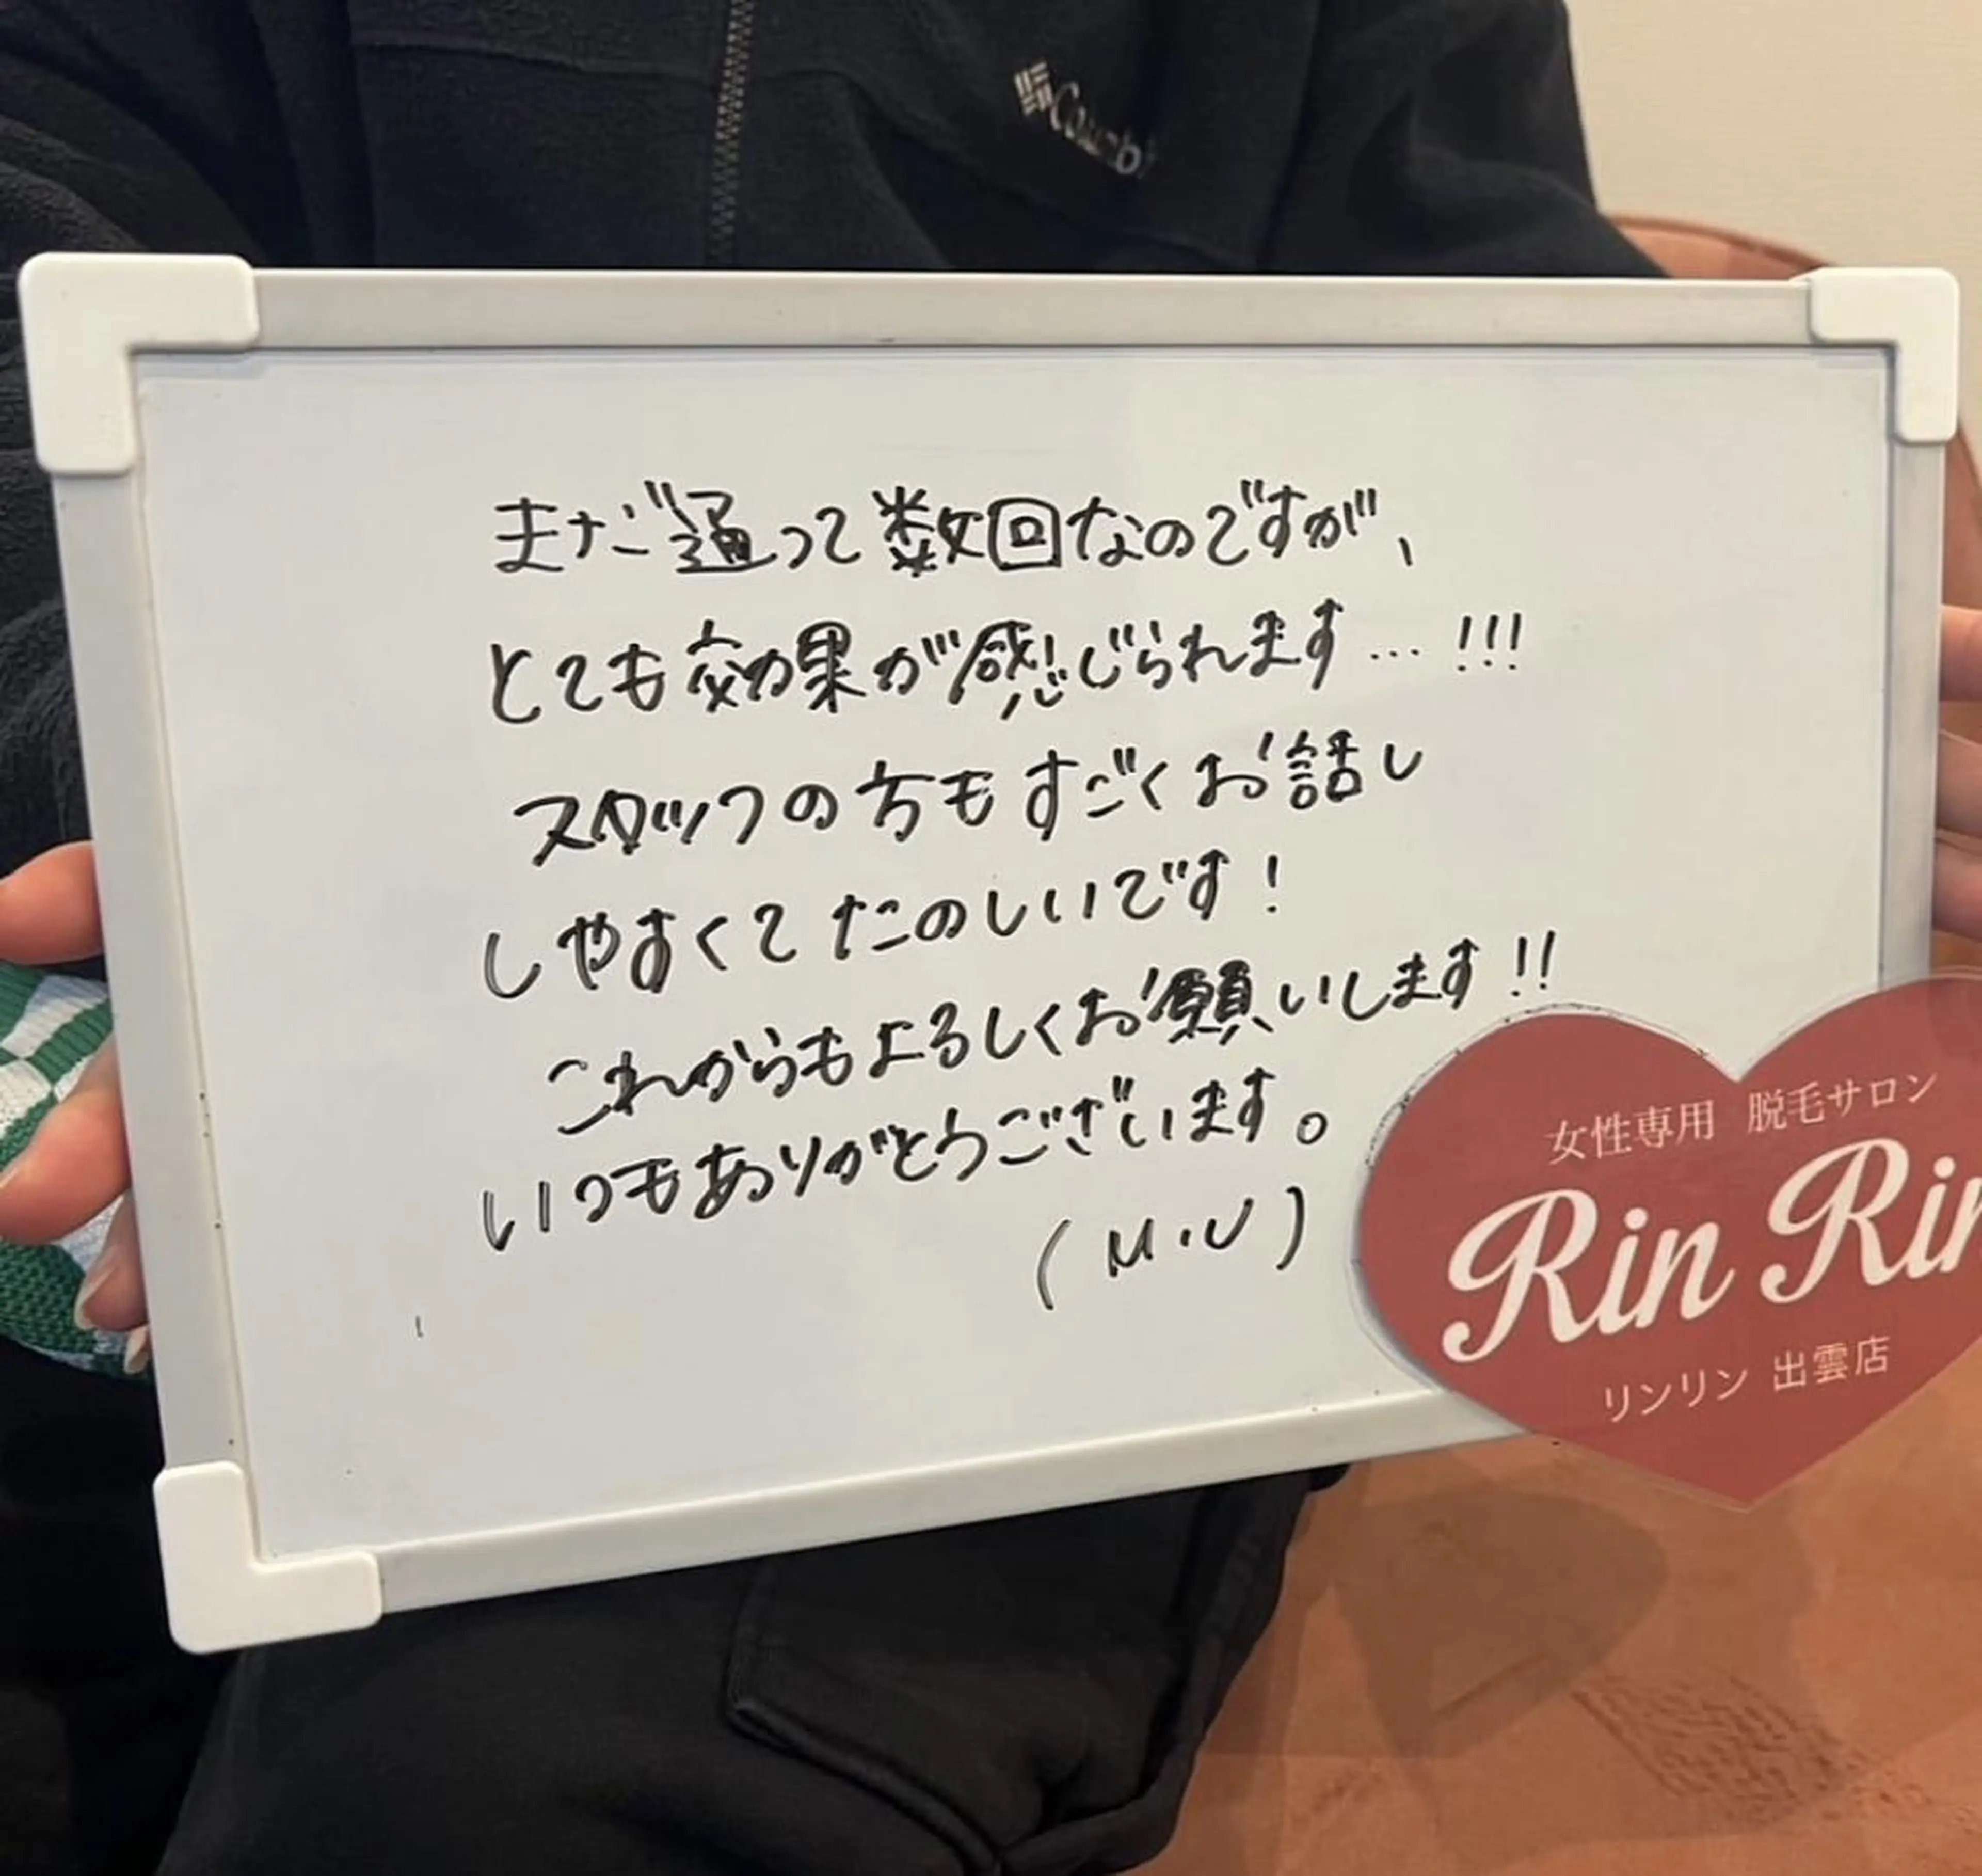 Columb
まだ通って数回なのですが、
とても効果が感じられます…!!!
スタッフの方もすごくお話し
しやすくてたのしいです!
これからもよろしくお願いします!!
いつもありがとうございます。
(M.U)
女性専用 脱毛サロン
Rin Rin
リンリン 出雲店